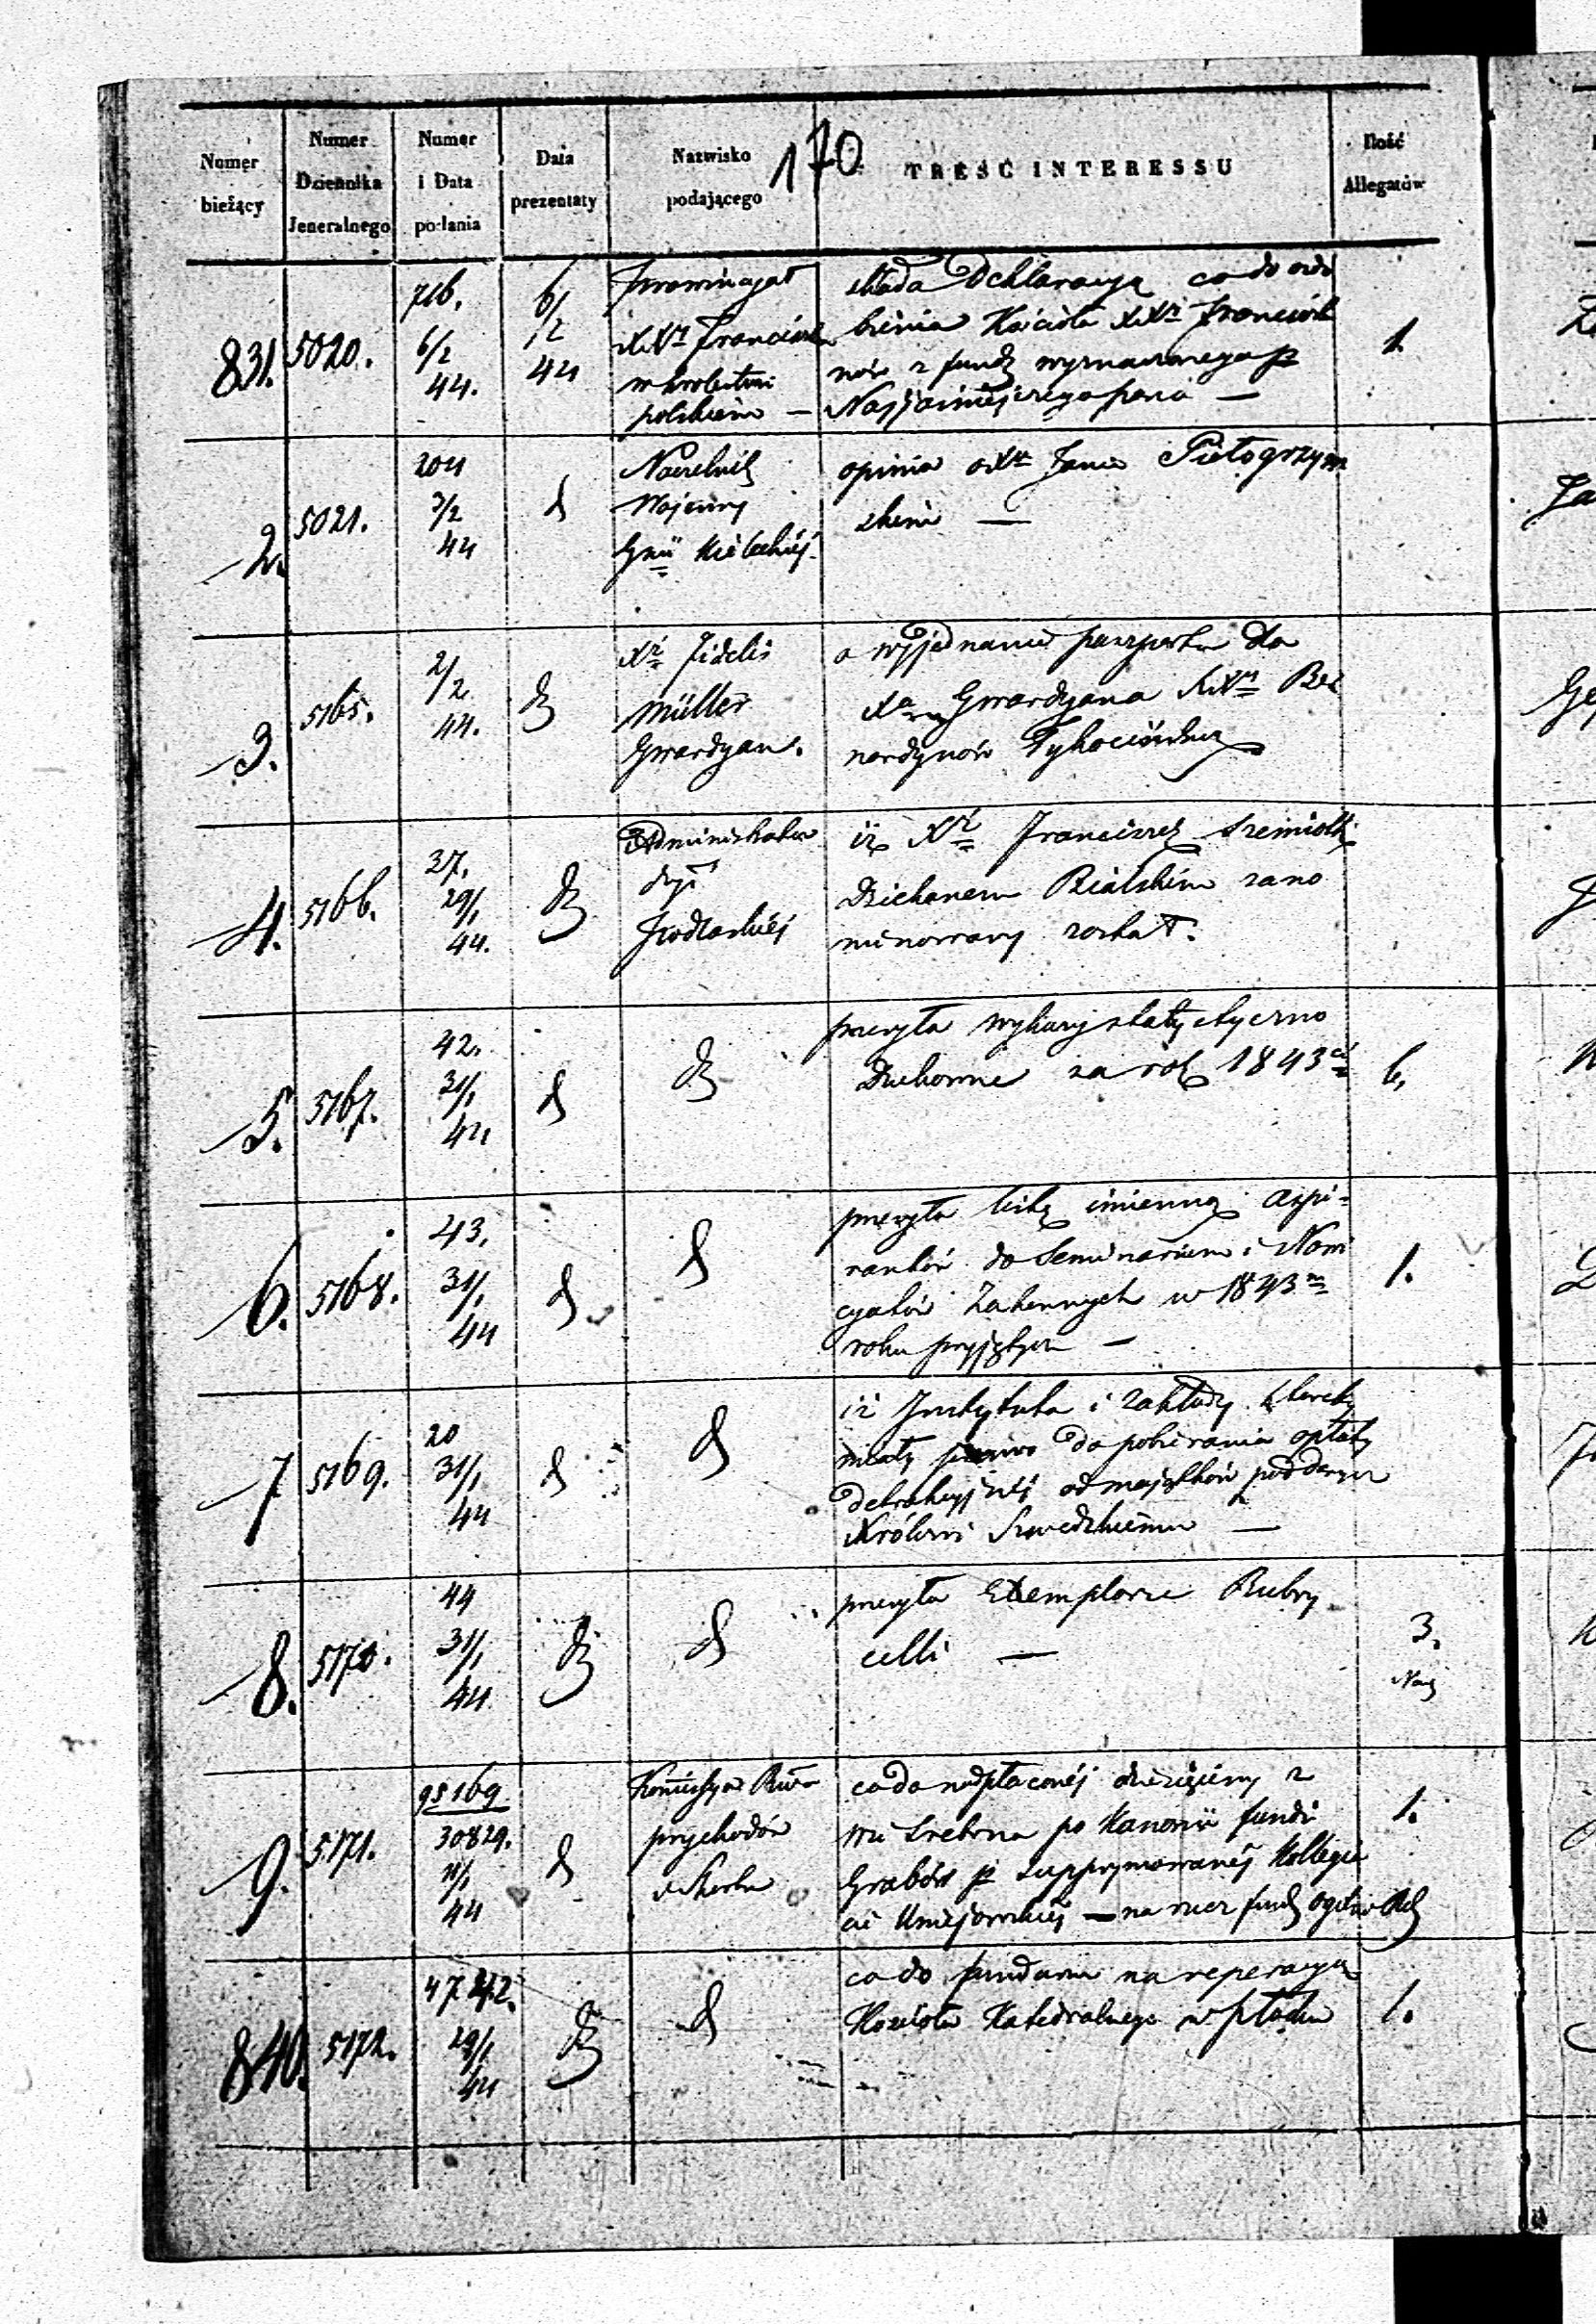 170
Numer bieżący
Numer Dziennika Jeneralnego
Numer i Data podania
Data prezentaty
Nazwisko podającego
TREŚĆ INTERESSU
Ilość Allegatów
831.
5020.
716.
6/2
44.
6/
/2
44
Prowincyał
XXn Francisk
w Królestwi
polskiem —
składa Deklaracyą co do ozdo
bienia Kościoła XXn Francisk
nów z fund wyznaczonego pr
Najjaśniejszego pana —
1.
2.
5021.
204
3/2
44
d
Naczelnik
Wojenny
Gnii Kieleckiej.
opinia o Janie Pielogrzym
skim —
3.
5165.
2/
/2
44.
d
Xz Fidelis
Müller
Gwardyan.
o wyjednanie paszportu dla
Xa Gwardyana XXn Ber
nardynów Tykocińskich
4.
5166.
37.
29/1
44.
d
Administrator
dyi
Podlaskiej
iż Xz Franciszek Szemiotk
Dziekanem Bialskim zano
minowany został.
5.
5167.
42.
31/1
44
d
d
przesyła wykazy statystyczno
Duchowne za rok 1843
6.
6.
5168.
43.
31/1
44
d
d
przesyła listę imienną aspi-
rantów do Seminarium i Nowi
cyatów Zakonnych w 1843
roku przyjętych —
1.
7
5169.
20
31/1
44
d
d
iż Instytuta i zakłady
miały prawo do pobierania opłaty
detrakcyjnej od majątków poddanych
Królowi Szwedzkiemu —
8.
5170.
44
31/1
44
d
d
przesyła Exemplarze Rubry
celli —
3.
9.
5171.
95169
30829.
11/1
44
d
Kommissya Rzą
przychodów
i Skarbu
co do nadpłaconej dziesięciny z
wsi Srebrna po Kanonii fundi
Grabów pr supprymowanej Kollegia
cie Uniejowskiej — na rzecz fund
1.
840.
5172.
29/1
44
d
d
co do funduszu na reperacyą
Kościoła Katedralnego w Płocku
1.